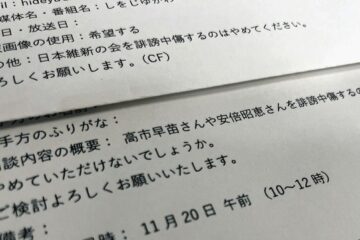 il：hideyo
媒体名・番組名：しをじゅかわ
日・放送日：
画像の使用：希望する
の他：日本維新の会を誹謗中傷するのはやめてください。
ろしくお願いします。(CF)
手方のふりがな：
談内容の概要： 高市早苗さんや安倍昭恵さんを誹謗中傷するの
やめていただけないでしょうか。
ご検討よろしくお願いいたします。
備考：
日時： 11月20日 午前 （10〜12時）